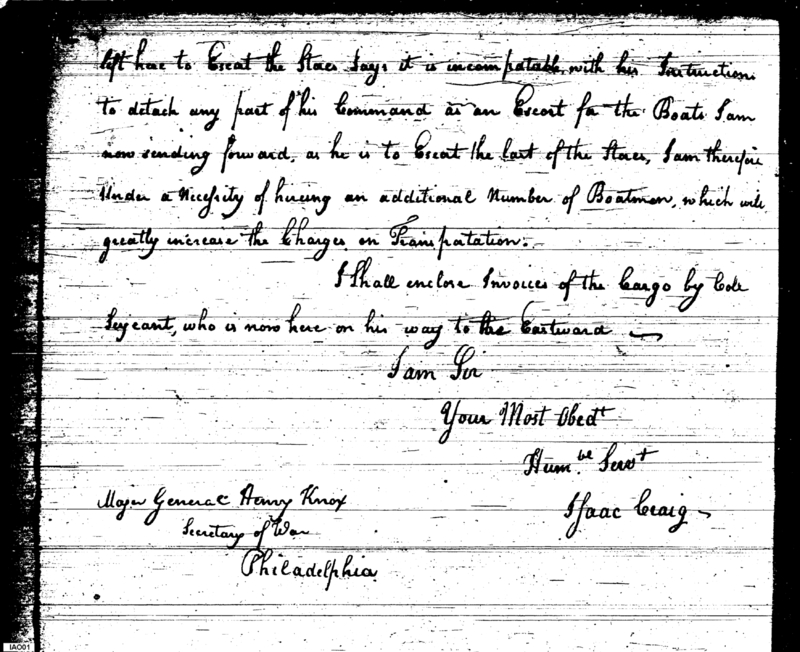 left here to Escort the Stores Says it is incompatable with his Instructions
to detach any part of his Command as an Escort for the Boats I am
now sending forward, as he is to Escort the last of the Stores, I am therefore
Under a Necessity of hireing an additional Number of Boatmen, which will
greatly increase the Charges on Transportation.
I Shall enclose Invoices of the Cargo by Colo
Sergeant, who is now here on his way to the Eastward
I am Sir
Your Most Obedt
Humbe Servt
Isaac Craig
Major General Henry Knox
Secretary of War
Philadelphia
IAO01